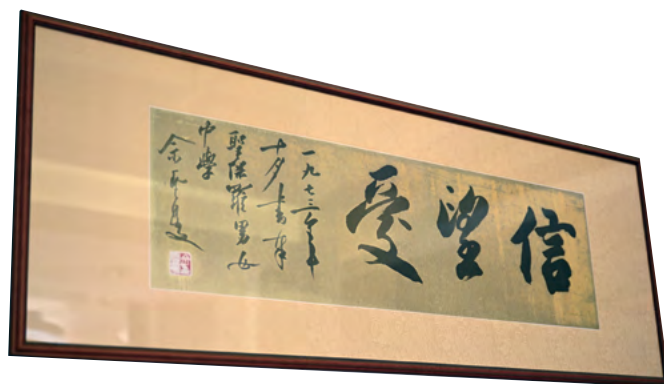 信望愛
一九七三年
十月書奉
聖保羅男女
中學
余